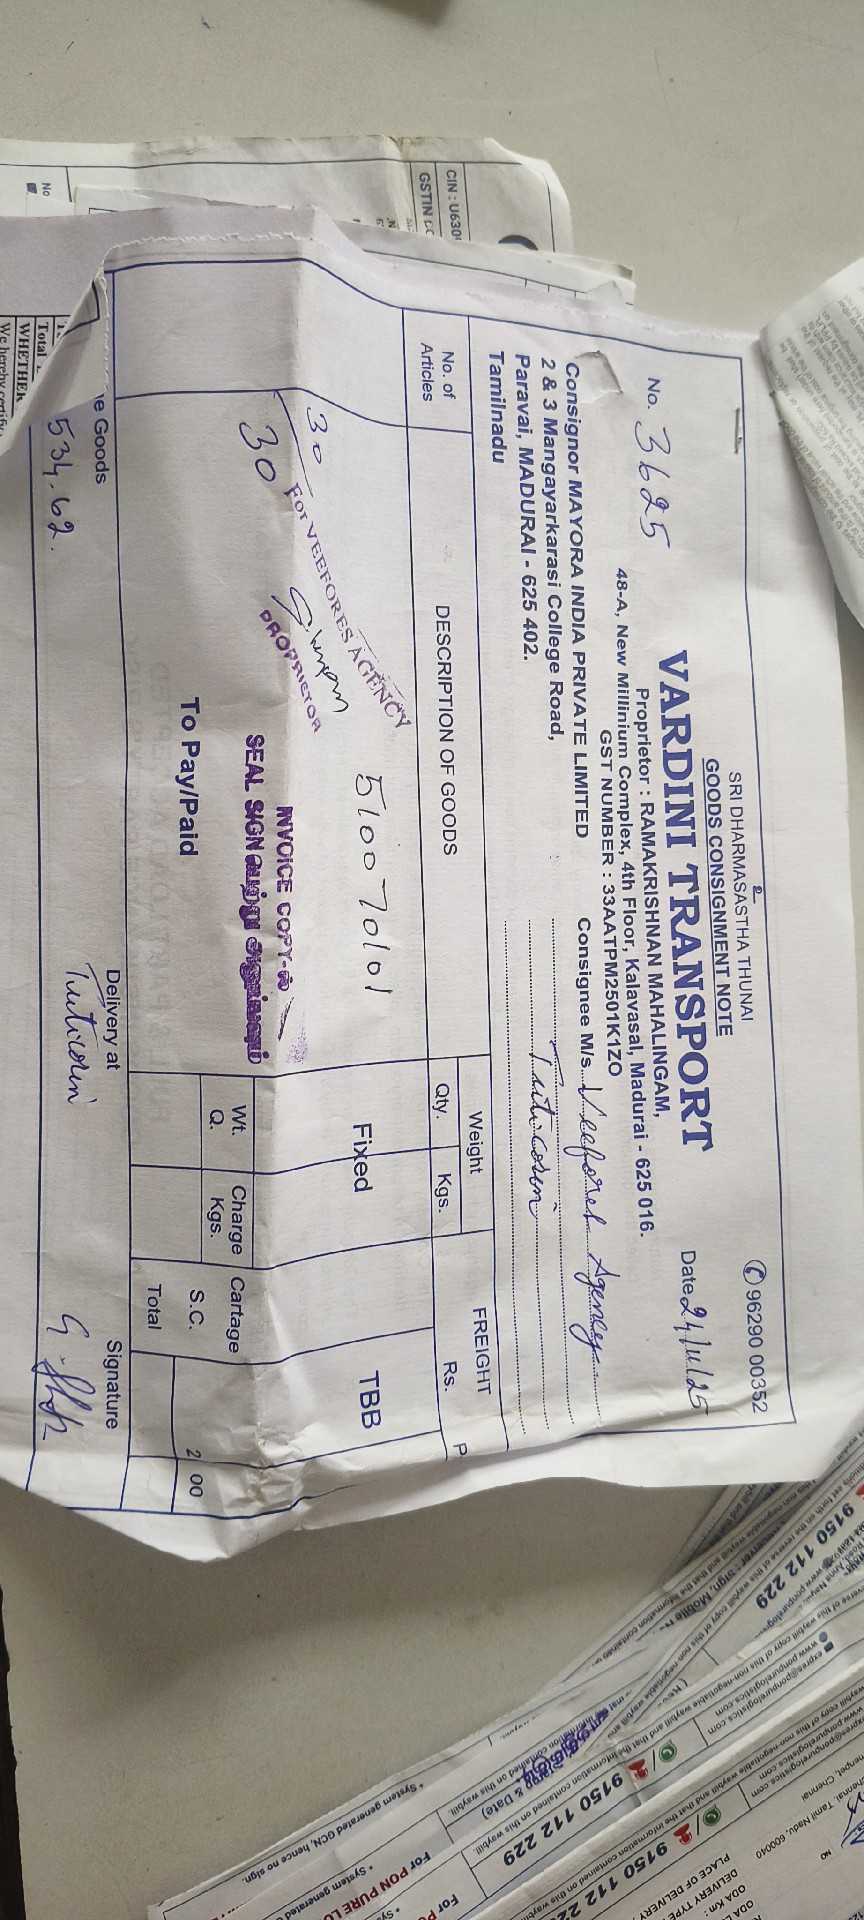 SRI DHARMASASTHA THUNAI
GOODS CONSIGNMENT NOTE
96290 00352
VARDINI TRANSPORT
No. 3625
Date 24/11/25
Proprietor : RAMAKRISHNAN MAHALINGAM,
48-A, New Millinium Complex, 4th Floor, Kalavasal, Madurai - 625 016.
GST NUMBER : 33AATPM2501K1ZO
Consignor MAYORA INDIA PRIVATE LIMITED
2 & 3 Mangayarkarasi College Road,
Paravai, MADURAI - 625 402.
Tamilnadu
Consignee M/s. Veefores Agency
Tuticorin
No. of
Articles
DESCRIPTION OF GOODS
Weight
Qty.
Kgs.
FREIGHT
Rs.
P
30
510070101
Fixed
TBB
30
For VEEFORES AGENCY
PROPRIETOR
INVOICE COPY-ல்
SEAL SIGN
To Pay/Paid
Wt.
Q.
Charge
Kgs.
Cartage
S.C.
2 00
Total
e Goods
534.62.
Delivery at
Tuticorin
Signature
CIN : U630
GSTIN
No
Total
WHETHER
We hereby certify
9150 112 229
9150 112 229
9150 112 22
* System generated GCN, hence no sign.
* System generated
For PON PURE LO
For
& Date)
contained on this waybill.
PLACE OF DELIVERY
DELIVERY TYPE
ODA Km :
Chennai, Tamil Nadu, 600040
NO